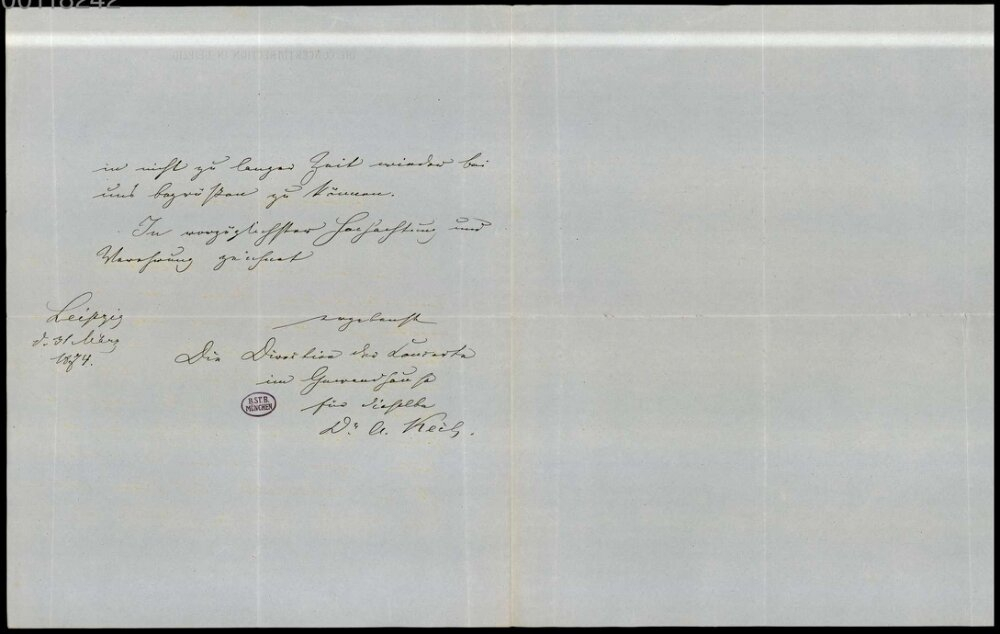 00118242
in nicht zu langer Zeit wieder bei
uns begrüßen zu können.
In vorzüglichster Hochachtung und
Verehrung zeichnet
Leipzig
d. 31 März
1874.
ergebenst
Die Direction der Concerte
im Gewandhause
für dieselbe
Dr. A. Keil.
B.ST.B.
MÜNCHEN